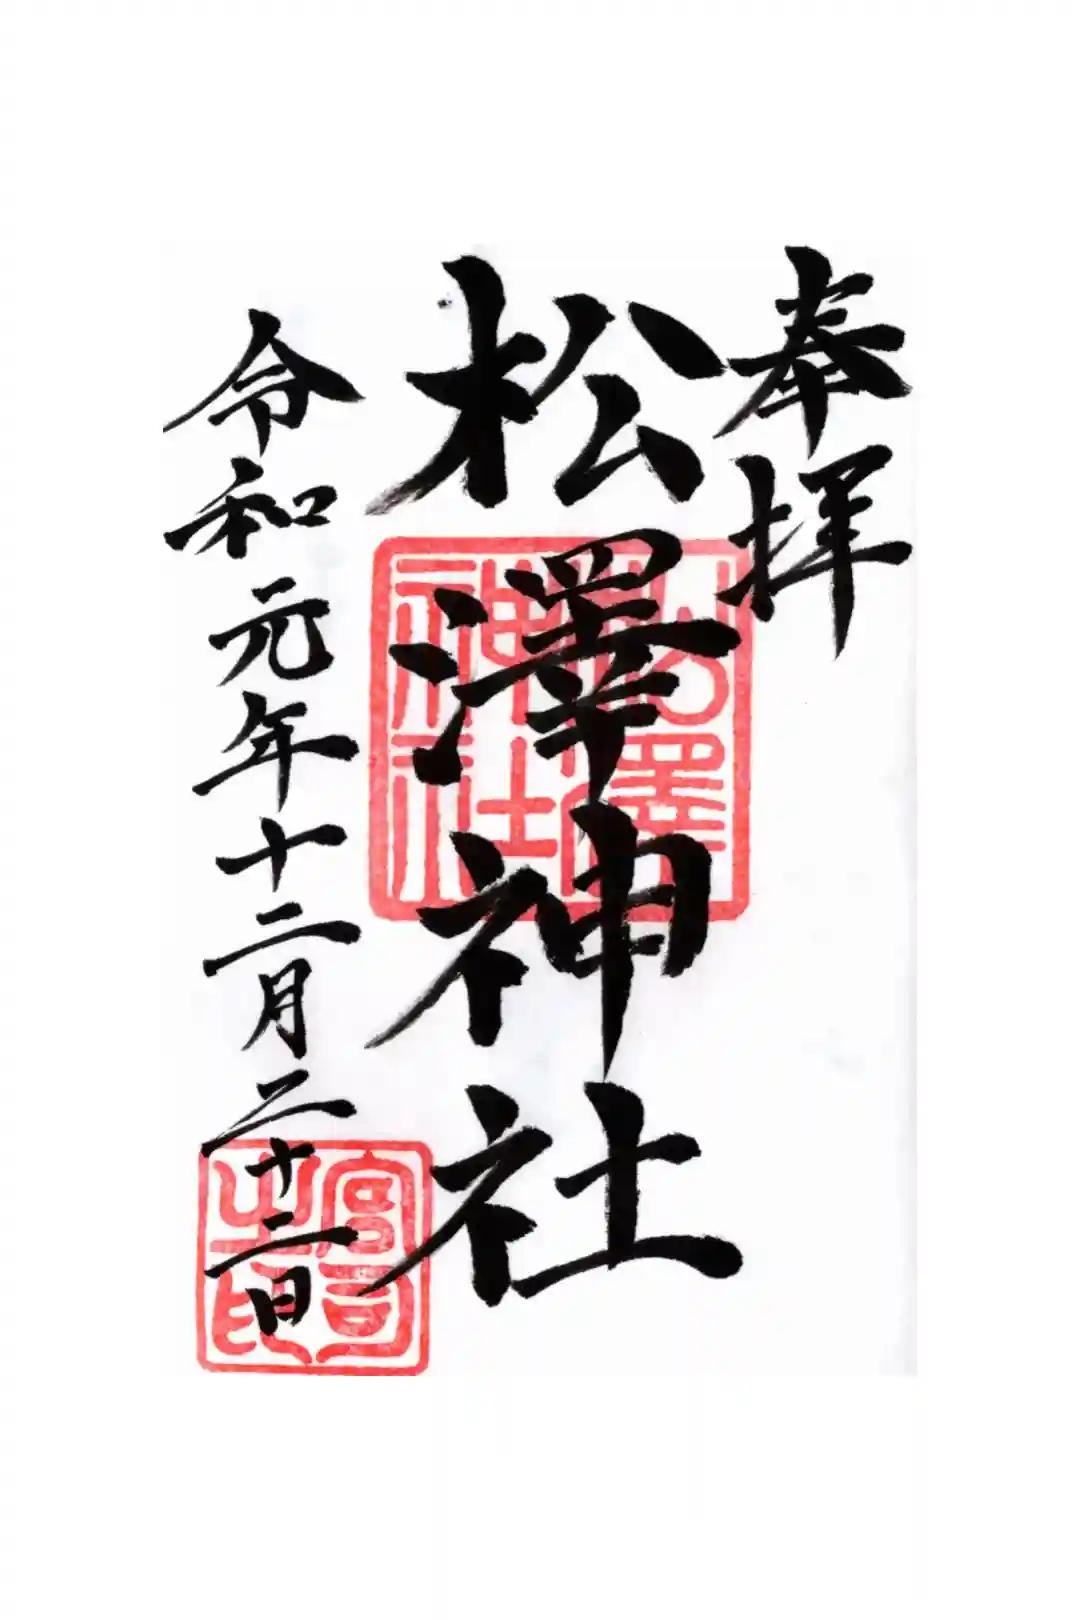 奉拝
松澤神社
松澤神社
令和元年十二月二十二日
宮司之印